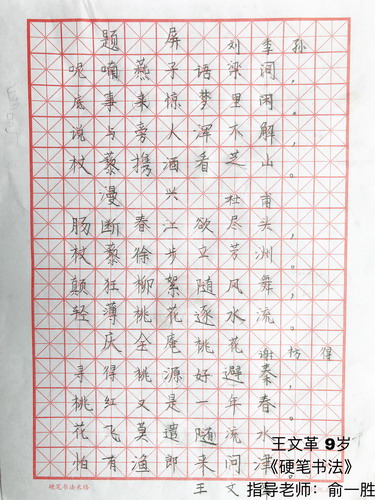 题 屏 刘季孙
呢喃燕子语梁间，
底事来惊梦里闲。
说与旁人浑不解，
杖藜携酒看芝山。
漫 兴 杜甫
肠断春江欲尽头，
杖藜徐步立芳洲。
颠狂柳絮随风舞，
轻薄桃花逐水流。
庆全庵桃花 谢枋得
寻得桃源好避秦，
桃红又是一年春。
花飞莫遣随流水，
怕有渔郎来问津。
王文
硬笔书法米格
王文革 9岁
《硬笔书法》
指导老师：俞一胜